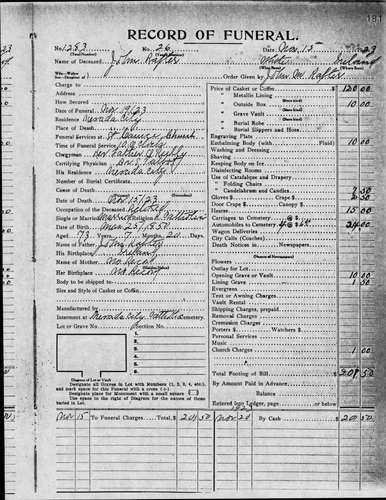 181
RECORD OF FUNERAL.
No. 1283 No. 26 Date Nov 15 1923
Name of Deceased John Rafter White Ireland
Order Given by John M Rafter
Charge to
Address
How Secured
Date of Funeral Nov 19/23
Residence Nevada City
Place of Death
Funeral Services at St Church
Time of Funeral Service 10 A O'clock
Clergyman Rev Father
Certifying Physician Dr
His Residence Nevada City
Number of Burial Certificate
Cause of Death
Date of Death Nov 15/23
Occupation of the Deceased Retired
Single or Married Religion R. Catholic
Date of Birth 1850
Aged 73 Years Months 20 Days
Name of Father John Rafter
His Birthplace Ireland
Name of Mother No Record
Her Birthplace No Record
Body to be shipped to
Size and Style of Casket or Coffin
Manufactured by
Interment at Nevada City Catholic Cemetery
Lot or Grave No. Section No.
1
2
3
4
5
6
Diagram of Lot or Vault
Designate all Graves in Lot with Numbers (1, 2, 3, 4, etc.), and mark space for this Funeral with a cross (+)
Designate place for Monument with a small square
Use space to the right of Diagram for the names of those buried in Lot.
Price of Casket or Coffin $ 120 00
Metallic Lining
" Outside Box 10 00
" Grave Vault
" Burial Robe
" Burial Slippers and Hose
Engraving Plate
Embalming Body (with Fluid) 10 00
Washing and Dressing
Shaving
Keeping Body on Ice
Disinfecting Rooms
Use of Catafalque and Drapery
" Folding Chairs
" Candelabrum and Candles
Gloves $ Door Crape $ 2 50
Hearse 15 00
Carriages to Cemetery @ $
Automobiles to Cemetery 4 @ $
Wagon Deliveries
City Calls (Coaches)
Death Notices in Newspapers
Flowers
Outlay for Lot
Opening Grave or Vault 10 00
Lining Grave 1 50
Evergreen
Tent or Awning Charges
Vault Rental
Shipping Charges, prepaid
Removal Charges
Cremation Charges
Porters $ Watchers $
Personal Services
Music
Church Charges
Total Footing of Bill
By Amount Paid in Advance
Balance
Entered into Ledger, page or below
1923
Nov 15 To Funeral Charges Total, $ 201 50 Nov 20 By Cash $ 201 50